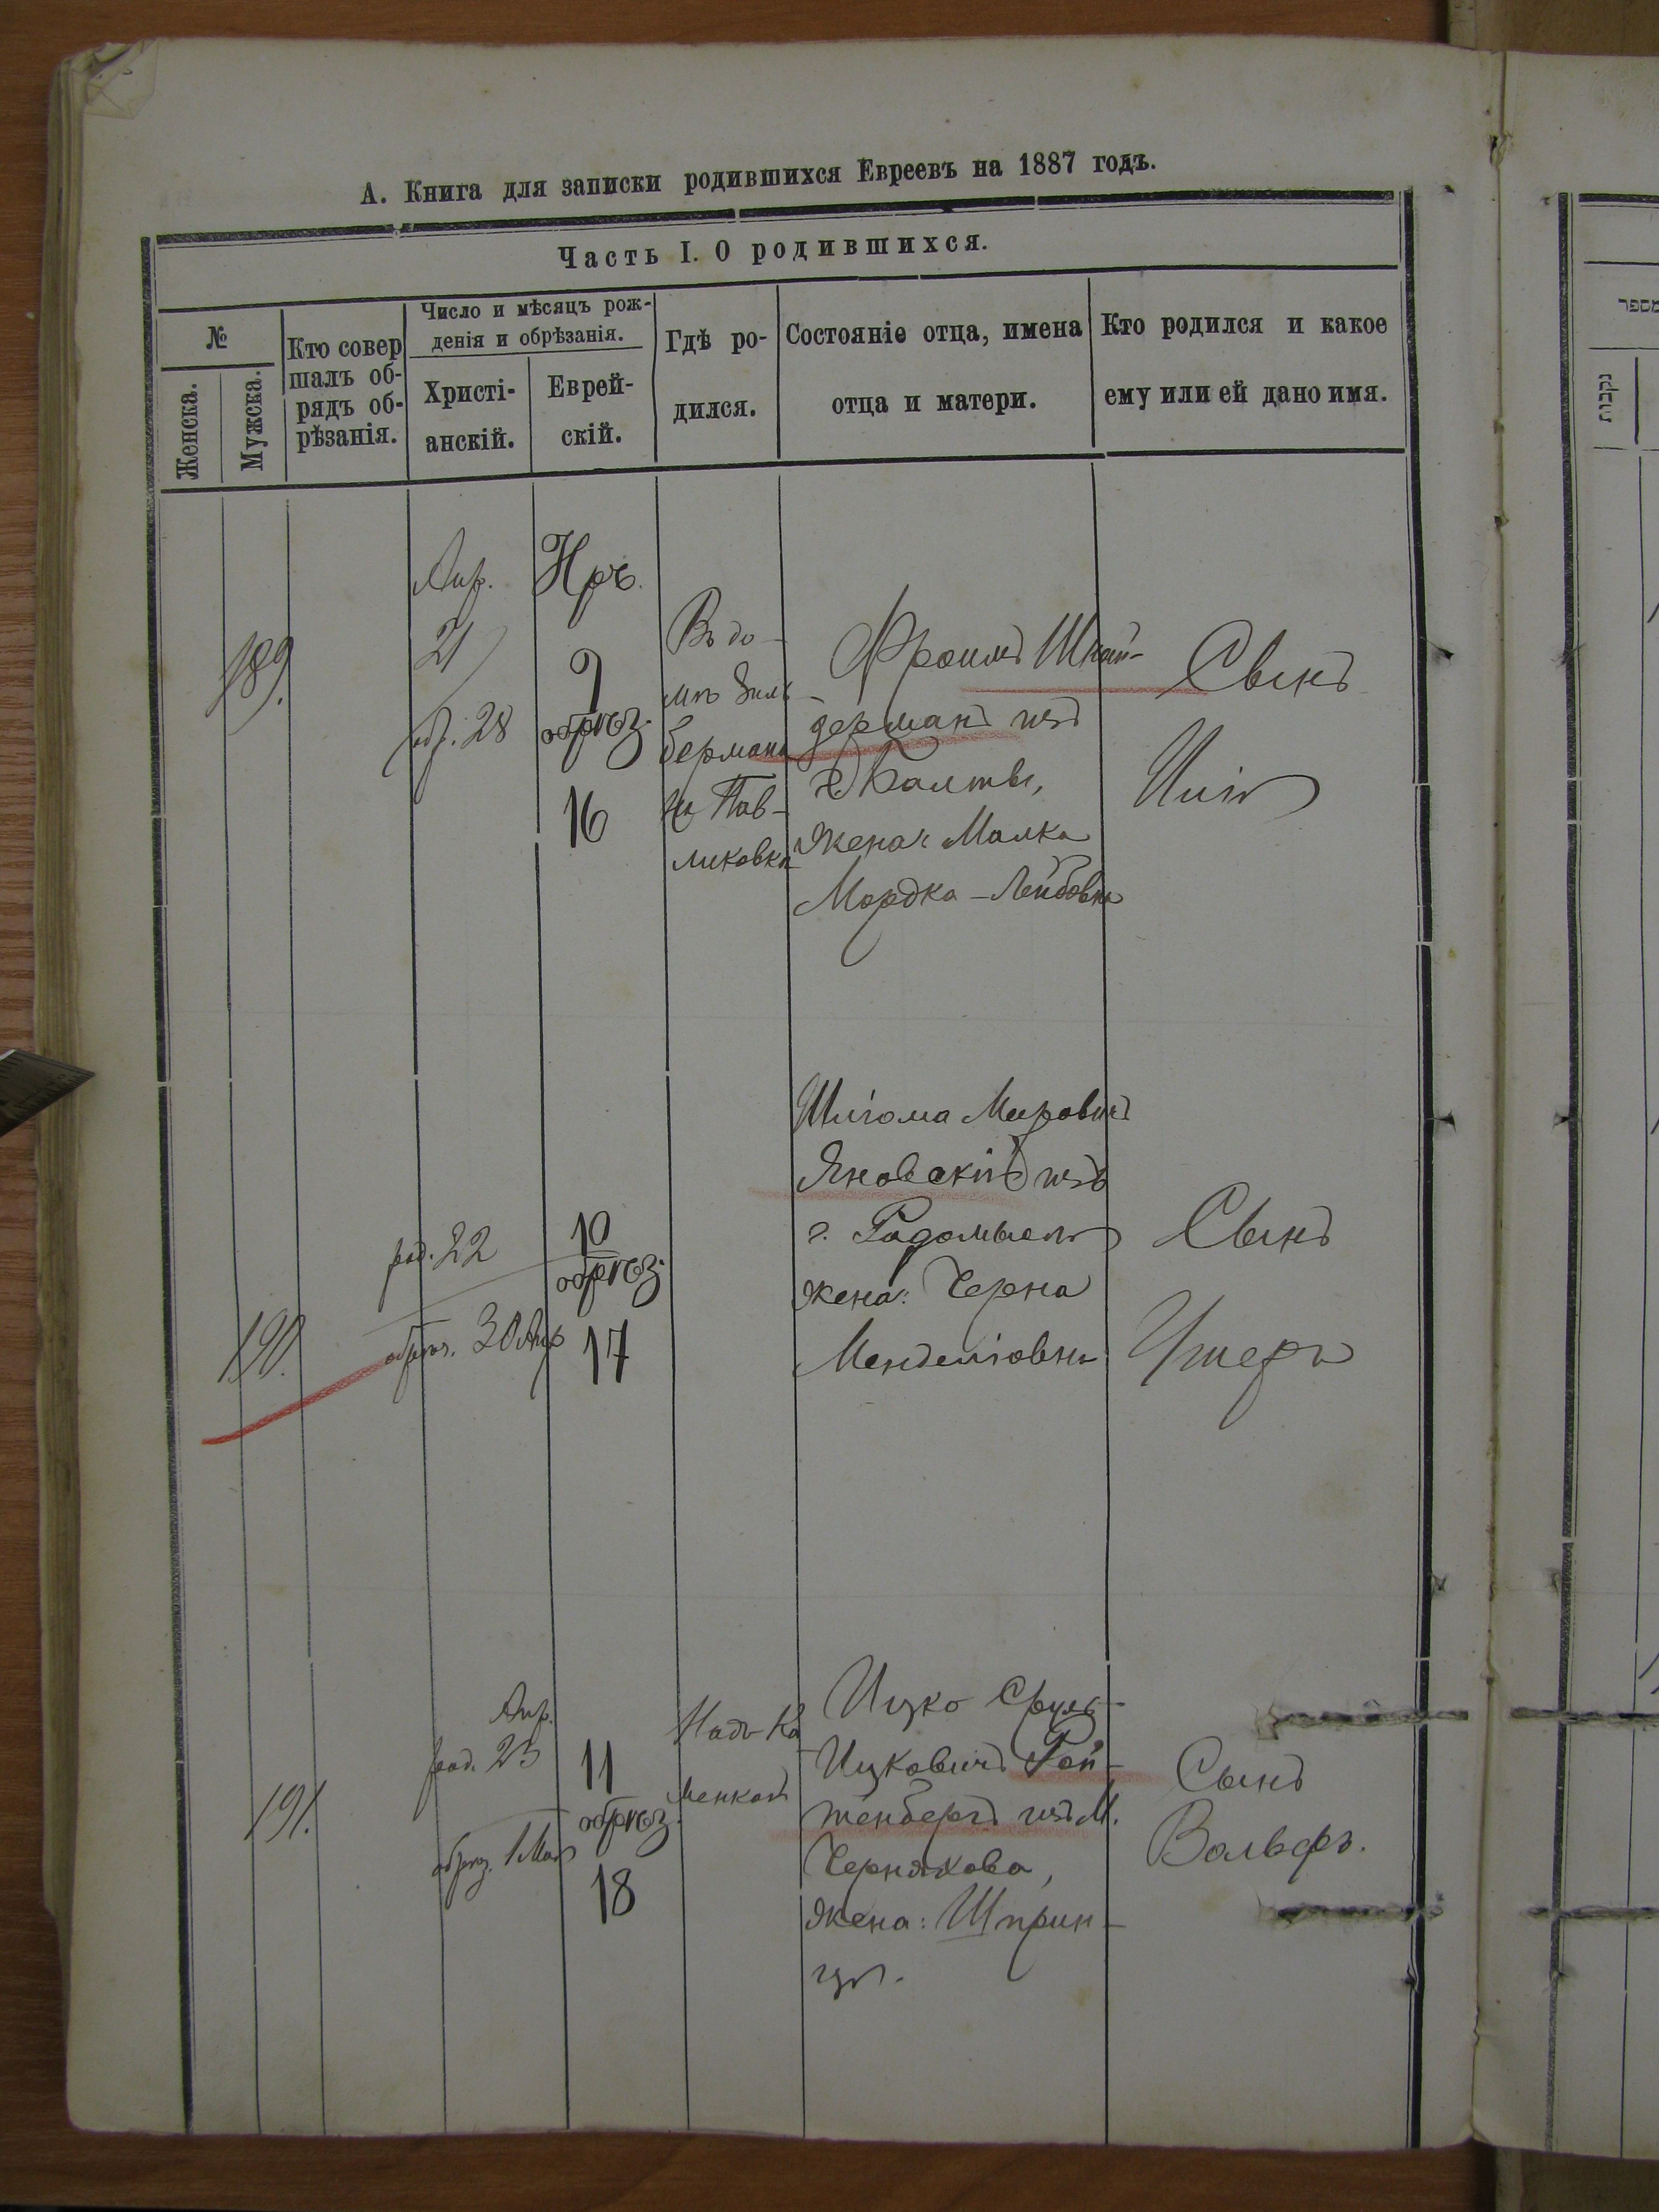 А. Книга для записки родившихся Евреевъ на 1887 годъ.
Часть I. О родившихся.
№
Женска.
Мужска.
Кто совер
шалъ об-
рядъ об-
рѣзанія.
Число и мѣсяцъ рож-
денія и обрѣзанія.
Христі-
анскій.
Еврей-
скій.
Гдѣ ро-
дился.
Состояніе отца, имена
отца и матери.
Кто родился и какое
ему или ей дано имя.
189.
Апр.
21
обр. 28
Иръ.
9
обрѣз.
16
Въ до-
мѣ Зиль
бермана
на Пав-
ликовкѣ
Фроимъ Шнай-
дерманъ изъ
г. Балты,
жена: Малка
Мордка-Лейбовна
Сынъ
190.
род. 22
обрѣз. 30 Апр
10
обрѣз.
17
Шліома Меровичъ
Яновскій изъ
г. Радомысля
жена: Черна
Менделіовна
Сынъ
Ушеръ
191.
Апр.
род. 23
обрѣз. 1 Мая
11
обрѣз.
18
Надъ Ка
менкой
Ицко Сруль-
Ицковичъ Рой-
тенбергъ изъ М.
Черняхова,
жена: Шприн-
ца.
Сынъ
Вольфъ.
מספר
נקבות